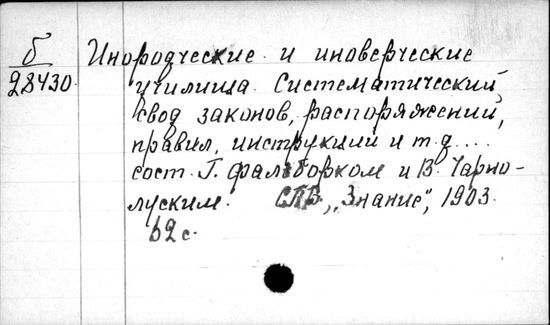 б
28430.
Инородческие и иноверческие
училища. Систематический
свод законов, распоряжений,
правил, инструкций и т.д....
сост. Г. Фальборком и В. Чарно-
луским. СПБ, „Знание“, 1903.
62 с.